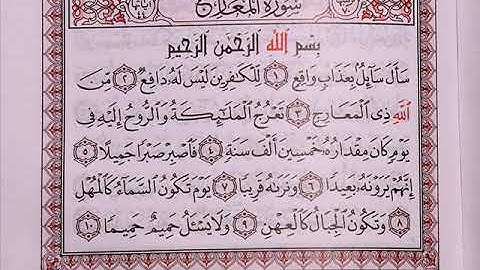 سُورَةُ المَعَارِجِ
بِسْمِ ٱللَّهِ ٱلرَّحْمَٰنِ ٱلرَّحِيمِ
سَأَلَ سَآئِلُۢ بِعَذَابٍ وَاقِعٍ ١ لِّلْكَٰفِرِينَ لَيْسَ لَهُۥ دَافِعٌ ٢ مِّنَ
ٱللَّهِ ذِى ٱلْمَعَارِجِ ٣ تَعْرُجُ ٱلْمَلَٰٓئِكَةُ وَٱلرُّوحُ إِلَيْهِ فِى
يَوْمٍ كَانَ مِقْدَارُهُۥ خَمْسِينَ أَلْفَ سَنَةٍ ٤ فَٱصْبِرْ صَبْرًا جَمِيلًا ٥
إِنَّهُمْ يَرَوْنَهُۥ بَعِيدًا ٦ وَنَرَىٰهُ قَرِيبًا ٧ يَوْمَ تَكُونُ ٱلسَّمَآءُ كَٱلْمُهْلِ
٨ وَتَكُونُ ٱلْجِبَالُ كَٱلْعِهْنِ ٩ وَلَا يَسْـَٔلُ حَمِيمٌ حَمِيمًا ١٠